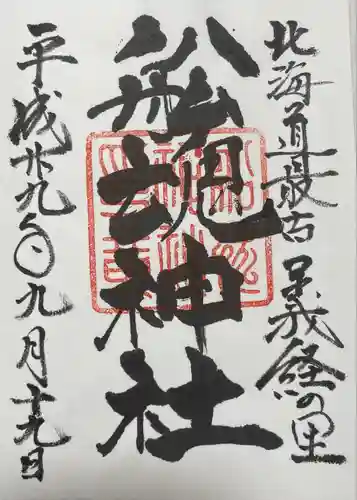 北海道最古 義経の里
舩魂神社
平成廿九年九月十九日